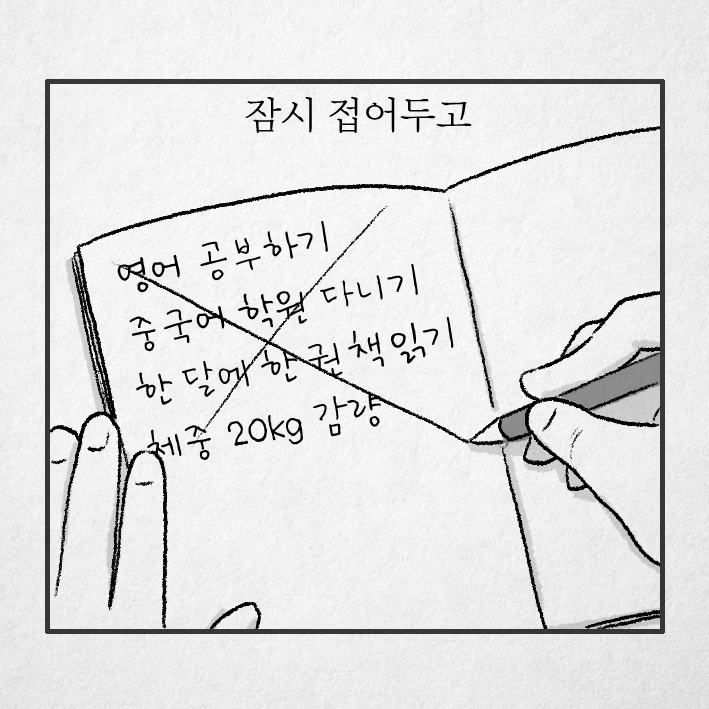 잠시 접어두고
영어 공부하기
중국어 학원 다니기
한 달에 한 권 책 읽기
체중 20kg 감량